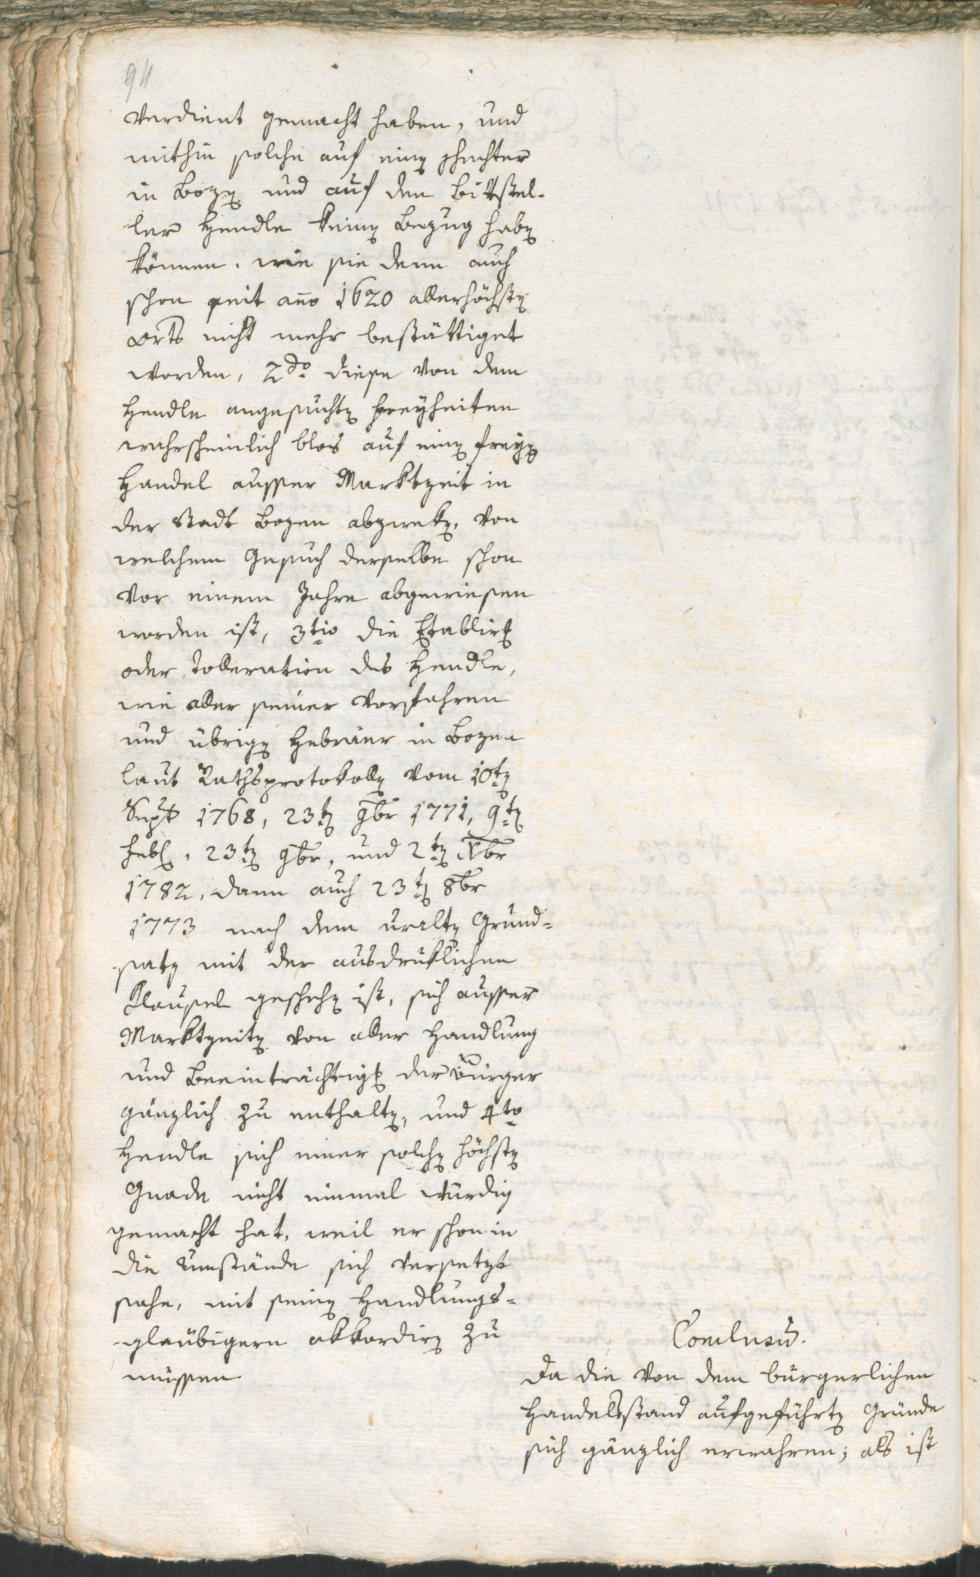 94
verdient gemacht haben, und
mithin solche auf eine
in Bozen und auf den Bittstel-
ler Hendle keinen Bezug haben
können. wie sie denn auch
schon seit ano 1620 allerhöchsten
Orts nicht mehr bestättiget
worden, 2do diese von dem
Hendle angesuchten Freyheiten
wahrscheinlich blos auf einen freyen
Handel ausser Marktzeit in
der Stadt Bozen abzweken, von
welchem Gesuch derselbe schon
vor einem Jahre abgewiesen
worden ist, 3tio die Etablirung
oder Tolleration des Hendle,
wie aller seiner Vorfahren
und übrigen Hebräer in Bozen
laut Rathsprotokollen vom 10ten
Sept 1768, 23ten 9br 1771, 9ten
Feb, 23ten 9br, und 2ten Xbr
1782, dann auch 23ten 8br
1773 nach dem uralten Grund-
satz mit der ausdrüklichen
Clausel geschehen ist, sich ausser
Marktzeiten von aller Handlung
und Beeinträchtigung der Bürger
gänzlich zu enthalten, und 4to
Hendle sich einer solchen höchsten
Gnade nicht einmal würdig
gemacht hat, weil er schon in
die Umstände sich versetzt
sahe, mit seinen Handlungs-
glaubigern akkordiren zu
müssen
Conclusum.
Da die von dem bürgerlichen
Handelsstand aufgeführten Gründe
sich gänzlich erwahren; als ist